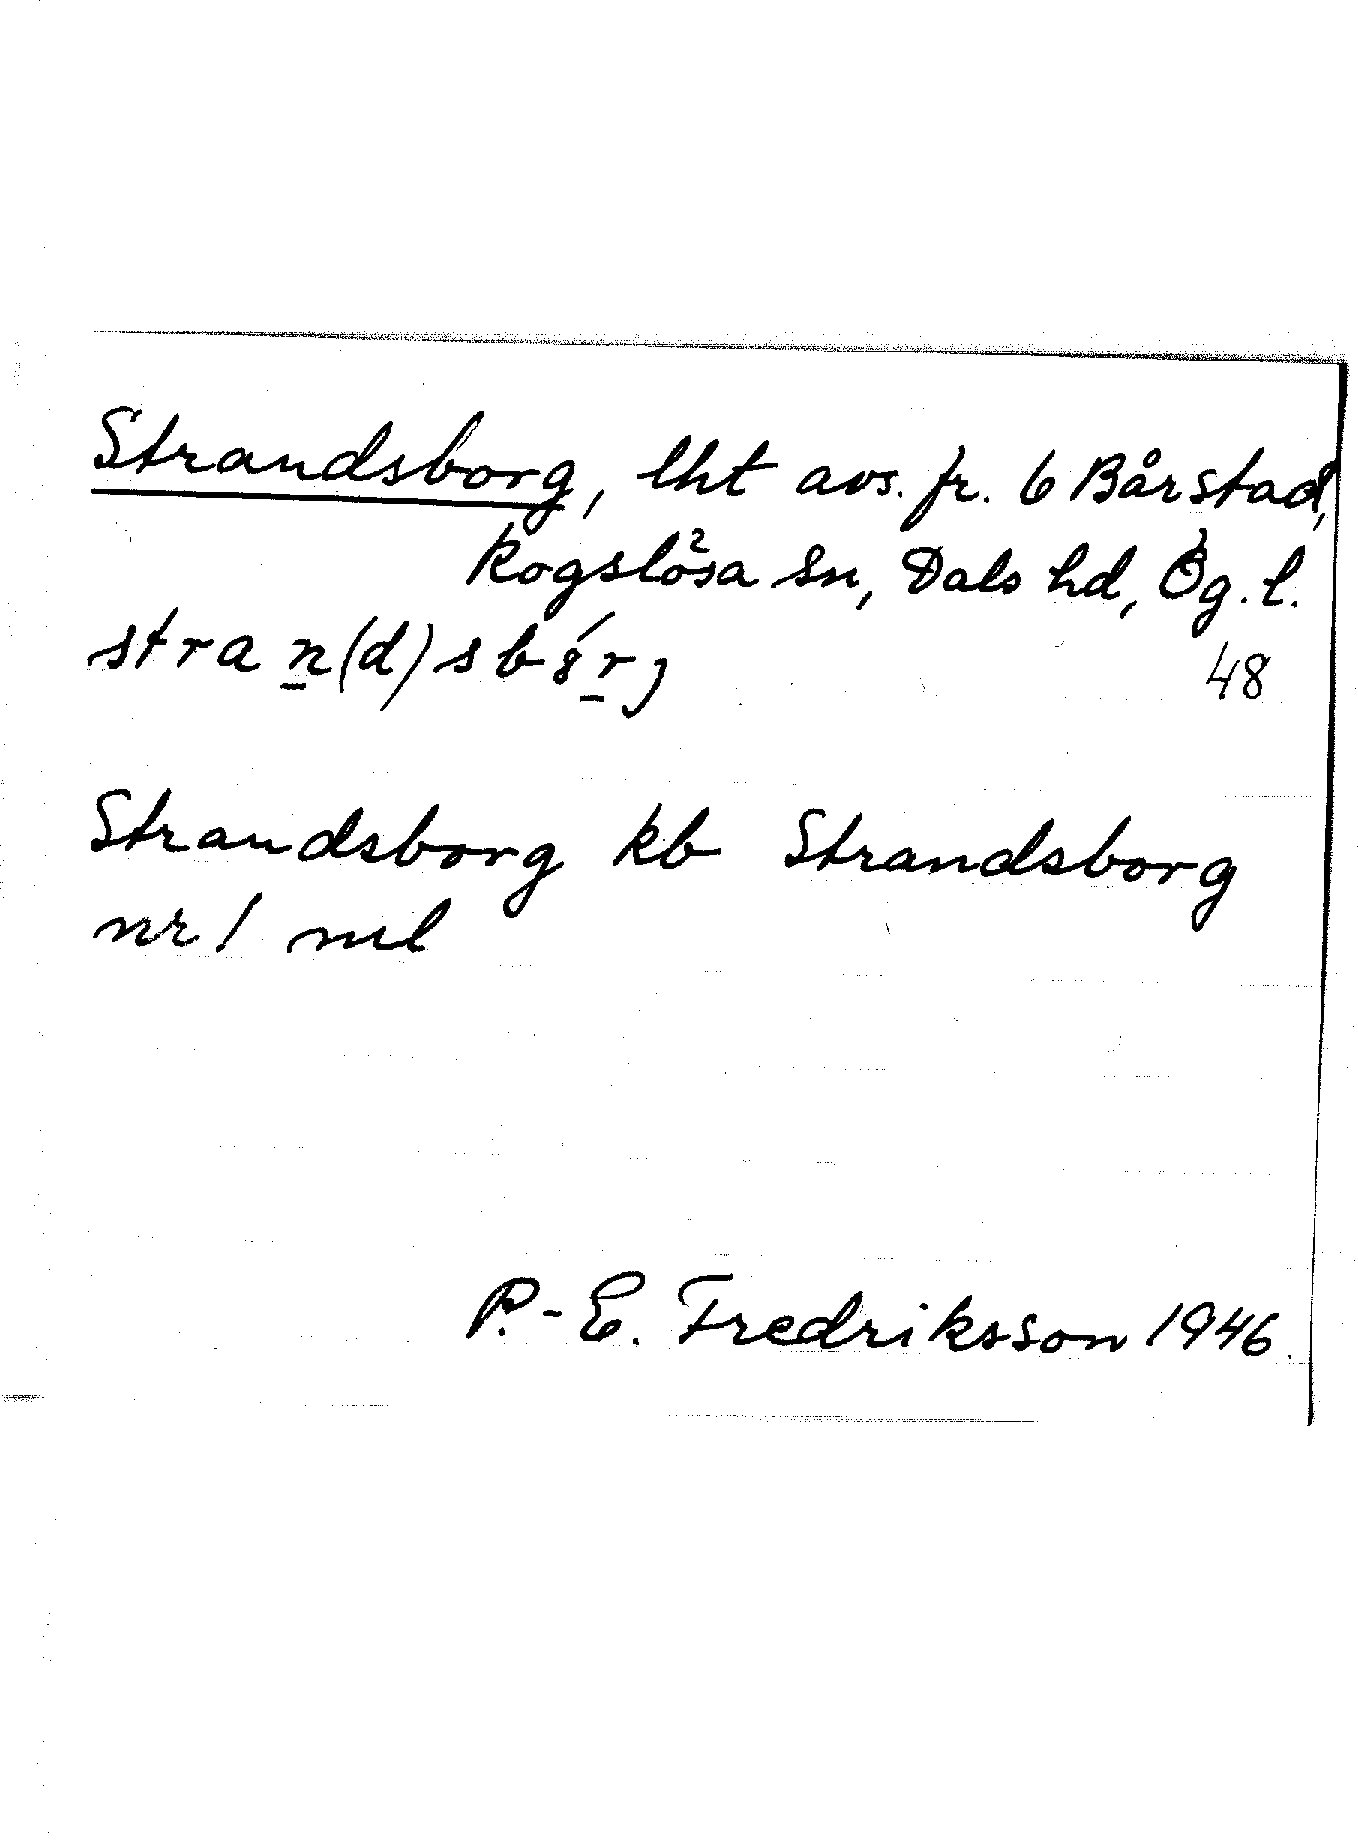 Strandsborg, lht avs. fr. 6 Bårstad,
Rogslösa sn, Dals hd, Ög. l.
stran(d)sbórj
48
Strandsborg kb Strandsborg
nr 1 ml
P.-E. Fredriksson 1946.